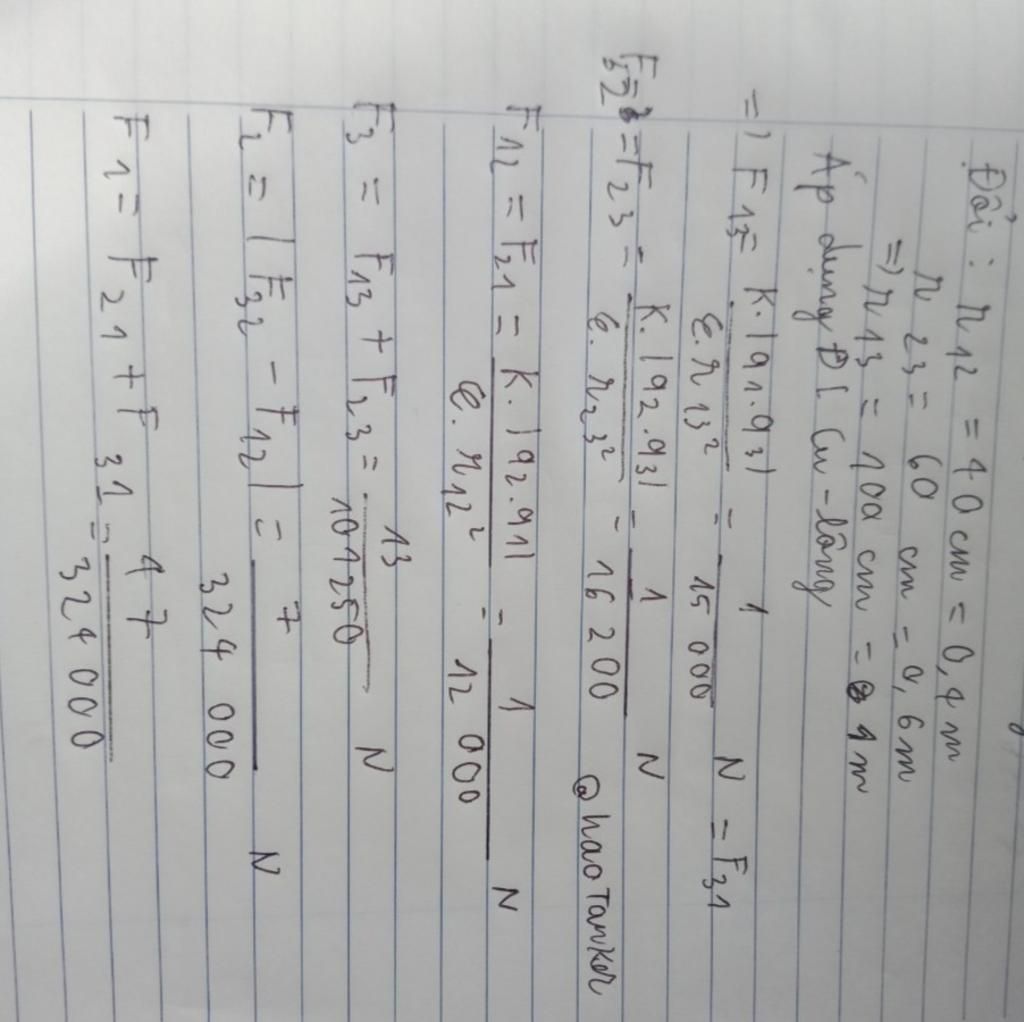 Đổi : r12 = 40 cm = 0,4 m
r 23 = 60 cm = 0,6 m
=) r 13 = 100 cm = 1 m
Áp dụng ĐL Cu-lông
=) F13 = K.|q1.q3| / ε.r13² = 1 / 15 000 N = F31
F32 = F23 = K.|q2.q3| / ε.r23² = 1 / 16 200 N
@haoTanker
F12 = F21 = K.|q2.q1| / ε.r12² = 1 / 12 000 N
F3 = F13 + F23 = 13 / 101250 N
F2 = |F32 - F12| = 7 / 324 000 N
F1 = F21 + F31 = 47 / 324 000